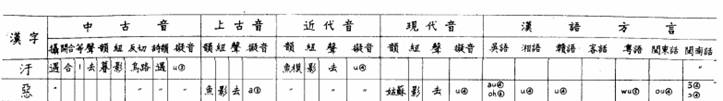 漢字 中古音 上古音 近代音 現代音 漢語方言
攝 開合 等 聲 韻 紐 反切 詩韻 擬音 韻 紐 聲 擬音 韻 紐 聲 擬音 韻 紐 聲 擬音 吳語 湘語 贛語 客語 粵語 閩東話 閩南話
汙 遇 合 一 去 暮 影 烏路 遇 u③ 魚模 影 去 u④ 〃
惡 〃 〃 〃 〃 魚 影 去 a③ 〃 〃 姑蘇 影 去 u④ u④ u④ wu③ ou④